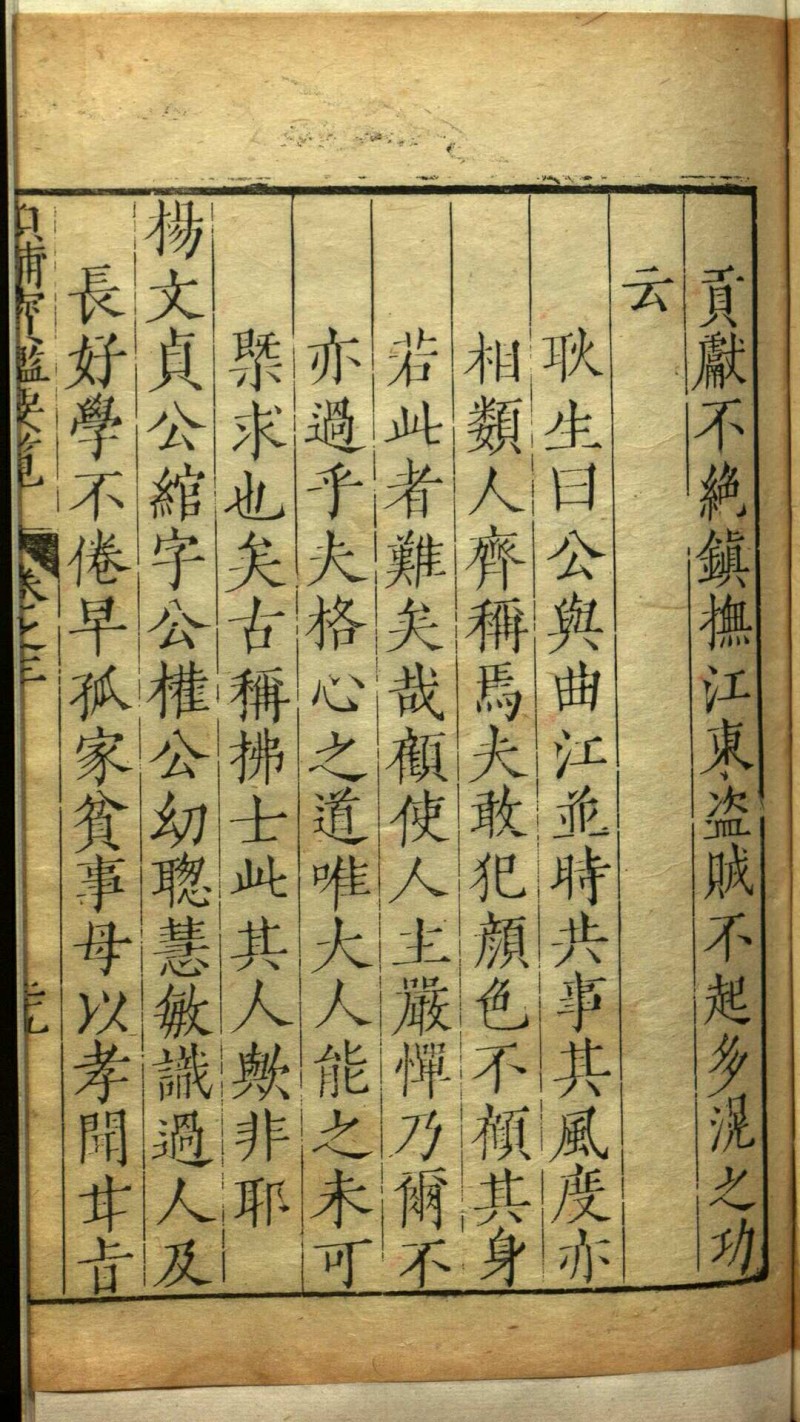 貢獻不絶鎮撫江東盗賊不起多滉之功
云
耿生曰公與曲江並時共事其風度亦
相類人齊稱焉夫敢犯顔色不顧其身
若此者難矣哉顧使人主嚴憚乃爾不
亦過乎夫格心之道唯大人能之未可
槩求也矣古稱拂士此其人歟非耶
楊文貞公綰字公權公幼聰慧敏識過人及
長好學不倦早孤家貧事母以孝聞甘旨
寳鑑要覧 卷之三